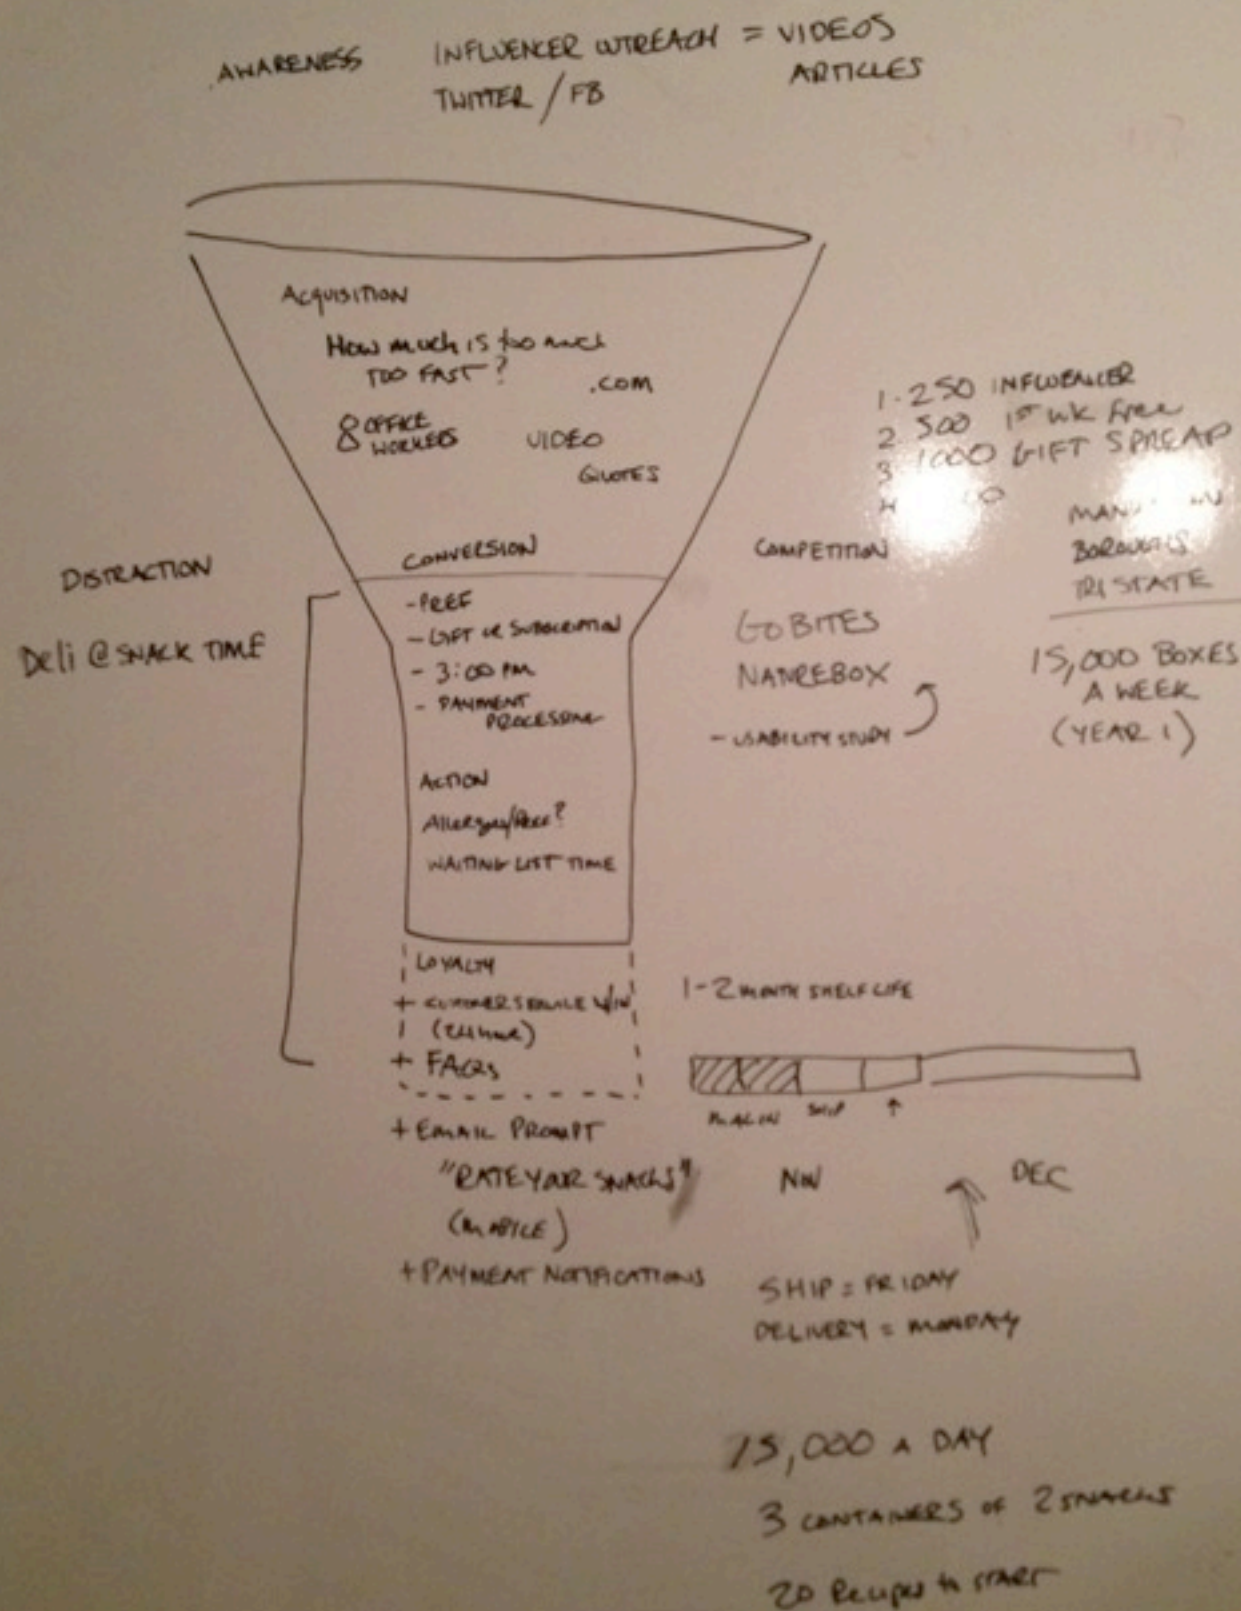 AWARENESS
INFLUENCER OUTREACH = VIDEOS
ARTICLES
TWITTER / FB
ACQUISITION
How much is too much
TOO FAST?
.COM
8 OFFICE
WORKERS
VIDEO
QUOTES
1. 250 INFLUENCER
2 500 1ST WK Free
3 1000 GIFT SPREAD
4
BOROUGHS
TRI STATE
15,000 BOXES
A WEEK
(YEAR 1)
DISTRACTION
Deli @ SNACK TIME
CONVERSION
- PREF
- GIFT OR SUBSCRIPTION
- 3:00 PM
- PAYMENT
PROCESSING
ACTION
WAITING LIST TIME
COMPETITION
GOBITES
- USABILITY STUDY
LOYALTY
+ CUSTOMER SERVICE
(24 hour)
+ FAQs
+ EMAIL PROMPT
"RATE YOUR SNACKS"
(MOBILE)
+ PAYMENT NOTIFICATIONS
1-2 MONTH SHELF LIFE
SHIP
DEC
SHIP = FRIDAY
DELIVERY = MONDAY
15,000 A DAY
3 CONTAINERS OF 2 SNACKS
20 Recipes to START